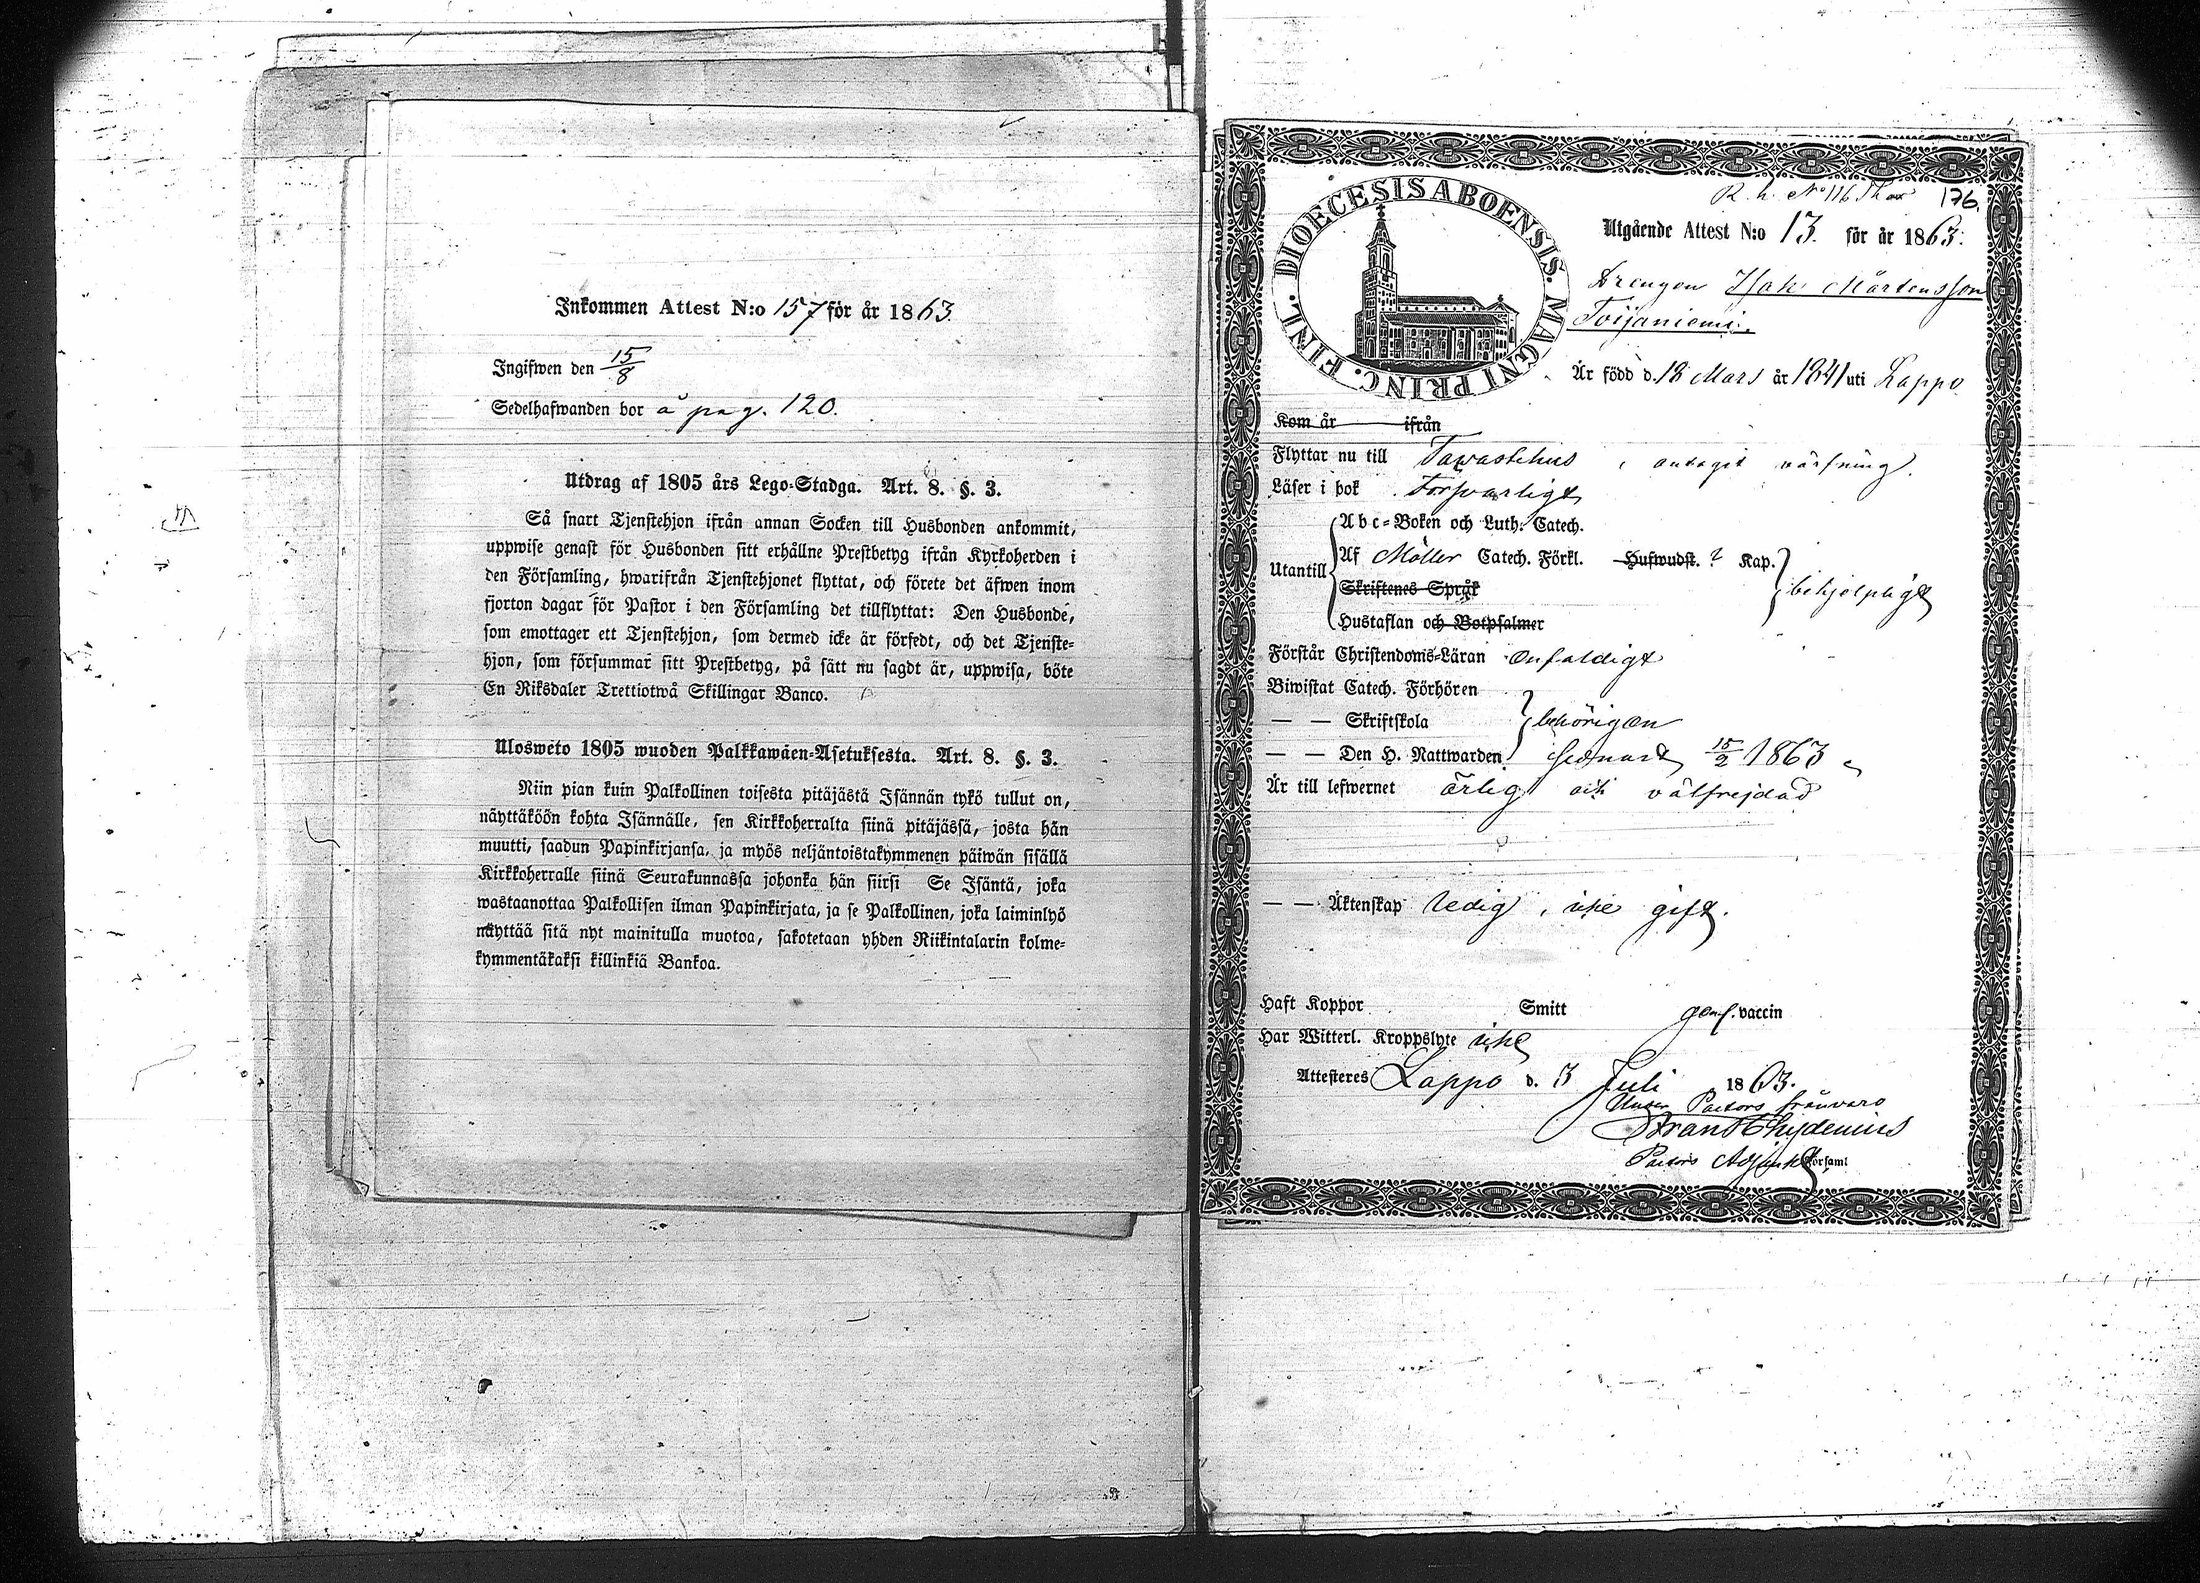 Inkommen Attest N:o 157 för år 1863.
Ingifwen den 15/8
Sedelhafwanden bor å pag. 120.
Utdrag af 1805 års Lego-Stadga. Art. 8. §. 3.
Så snart Tjenstehjon ifrån annan Socken till Husbonden ankommit,
uppwise genast för Husbonden sitt erhållne Prestbetyg ifrån Kyrkoherden i
den Församling, hwarifrån Tjenstehjonet flyttat, och förete det äfwen inom
fjorton dagar för Pastor i den Församling det tillflyttat: Den Husbonde,
som emottager ett Tjenstehjon, som dermed icke är försedt, och det Tjenste-
hjon, som försummar sitt Prestbetyg, på sätt nu sagdt är, uppwisa, böte
En Riksdaler Trettiotwå Skillingar Banco.
Ulosweto 1805 wuoden Palkkawäen-Asetuksesta. Art. 8. §. 3.
Niin pian kuin Palkollinen toisesta pitäjästä Isännän tykö tullut on,
näyttäköön kohta Isännälle, sen Kirkkoherralta siinä pitäjässä, josta hän
muutti, saadun Papinkirjansa, ja myös neljäntoistakymmenen päiwän sisällä
Kirkkoherralle siinä Seurakunnassa johonka hän siirsi Se Isäntä, joka
wastaanottaa Palkollisen ilman Papinkirjata, ja se Palkollinen, joka laiminlyö
näyttää sitä nyt mainitulla muotoa, sakotetaan yhden Riikintalarin kolme-
kymmentäkaksi killinkiä Bankoa.
R. h. No 116 176.
DIOECESIS ABOENSIS. MAGNI PRINC. FINL.
Utgående Attest N:o 13. för år 1863.
Drengen Isak Mårtensson
Toijaniemi.
Är född d. 18 Mars år 1841 uti Lappo
Kom år ifrån
Flyttar nu till Tavastehus, antagit värfning.
Läser i bok Försvarligt
Abc-Boken och Luth. Catech.
Utantill Af Möller Catech. Förkl. Hufwudst. ? Kap. behjelpligt
Skriftenes Språk
Hustaflan och Botpsalmer
Förstår Christendoms-Läran Enfaldigt
Biwistat Catech. Förhören
— — Skriftskola behörigen
— — Den H. Nattwarden senast 15/2 1863
Är till lefwernet ärlig och välfrejdad
— — Äktenskap ledig, icke gift.
Haft Koppor Smitt gen. vaccin
Har Witterl. Kroppslyte icke
Attesteres Lappo d. 3 Juli 1863.
Under Pastors frånvaro
Frans Chydenius
Pastors Adjunkt Församl